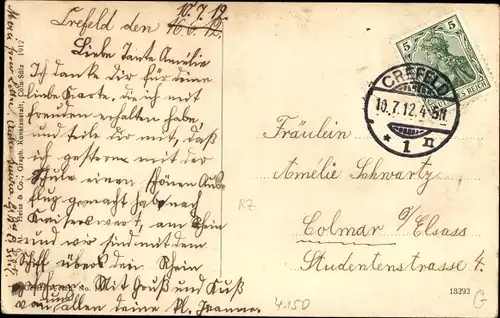 10.7.12
Crefeld den 10.6.12.
Liebe Tante Amélie
Ich danke dir für deine
liebe Karte, die ich mit
freuden erhalten habe,
und teile dir mit, daß
ich gestern mit der
Schule einen schönen Aus
flug gemacht habe nach
Kaiserswert, am Rhein
und wir sind mit dem
Schiff übers den Rhein
Mit Gruß und Kuß
von allen deine kl. Jeanne.
Heiss & Co., Graph. Kunstanstalt, Cöln-Sülz 1912
5 5
REICH
CREFELD
10.7.12.4-5N
* 1 n
Fräulein
Amélie Schwartz
Colmar i/Elsass
Studentenstrasse 4.
RZ
4150
13292
G